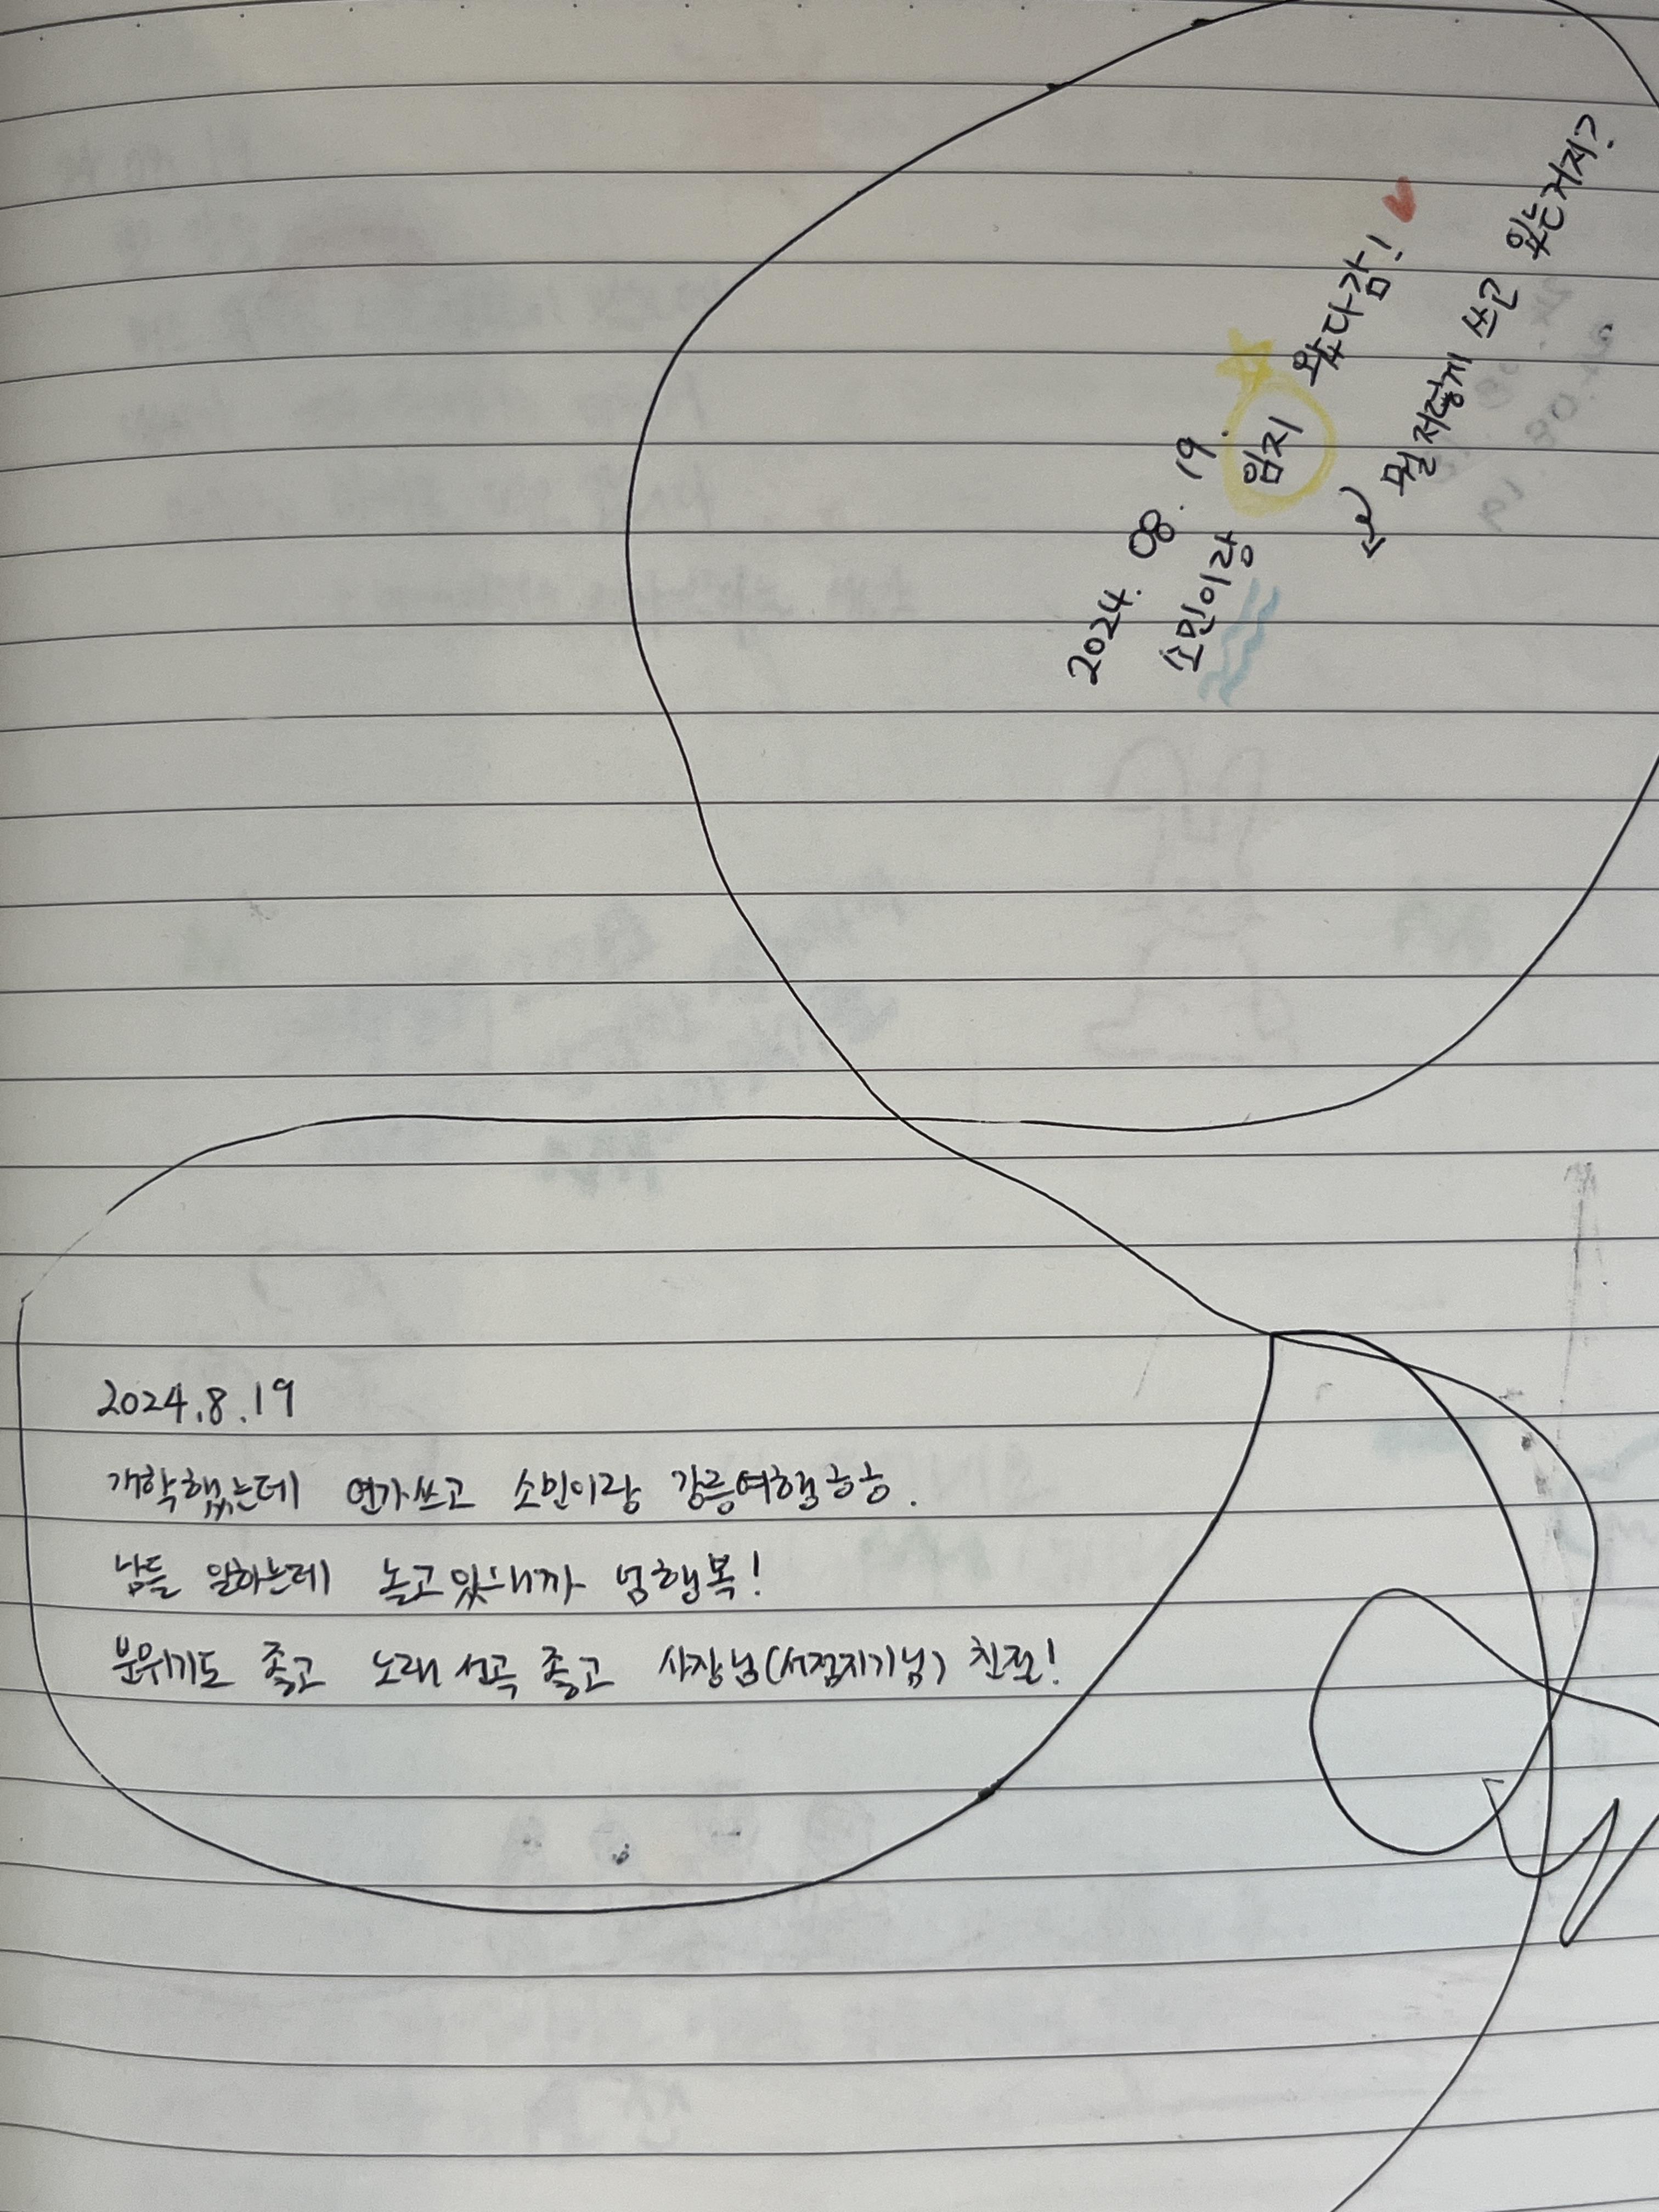 2024. 08. 19.
소민이랑 임지 왔다감!
뭘 저렇게 쓰고 있는거지?
2024.8.19
개학했는데 연가쓰고 소민이랑 강릉여행ㅎㅎ.
남들 일하는데 놀고있으니까 넘행복!
분위기도 좋고 노래 선곡 좋고 사장님(서점지기님) 친절!